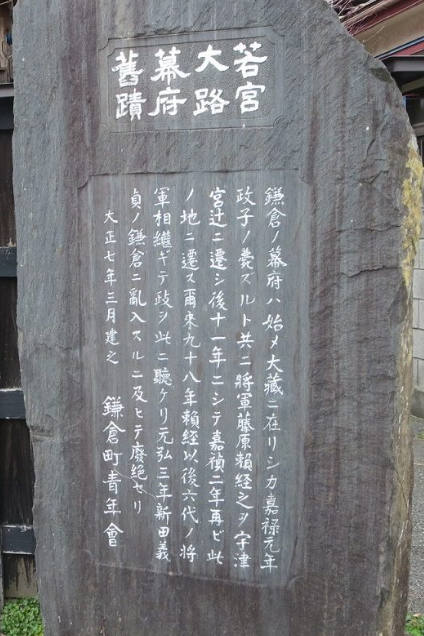 若宮
大路
幕府
舊蹟
鎌倉ノ幕府ハ始メ大藏ニ在リシカ嘉禄元年
政子ノ薨スルト共ニ將軍藤原頼経之ヲ宇津
宮辻ニ遷シ後十一年ニシテ嘉禎二年再ビ此
ノ地ニ遷ス爾来九十八年頼経以後六代ノ将
軍相継ギテ政ヲ此ニ聽ケリ元弘三年新田義
貞ノ鎌倉ニ亂入スルニ及ヒテ廃絶セリ
大正七年三月建之 鎌倉町青年會